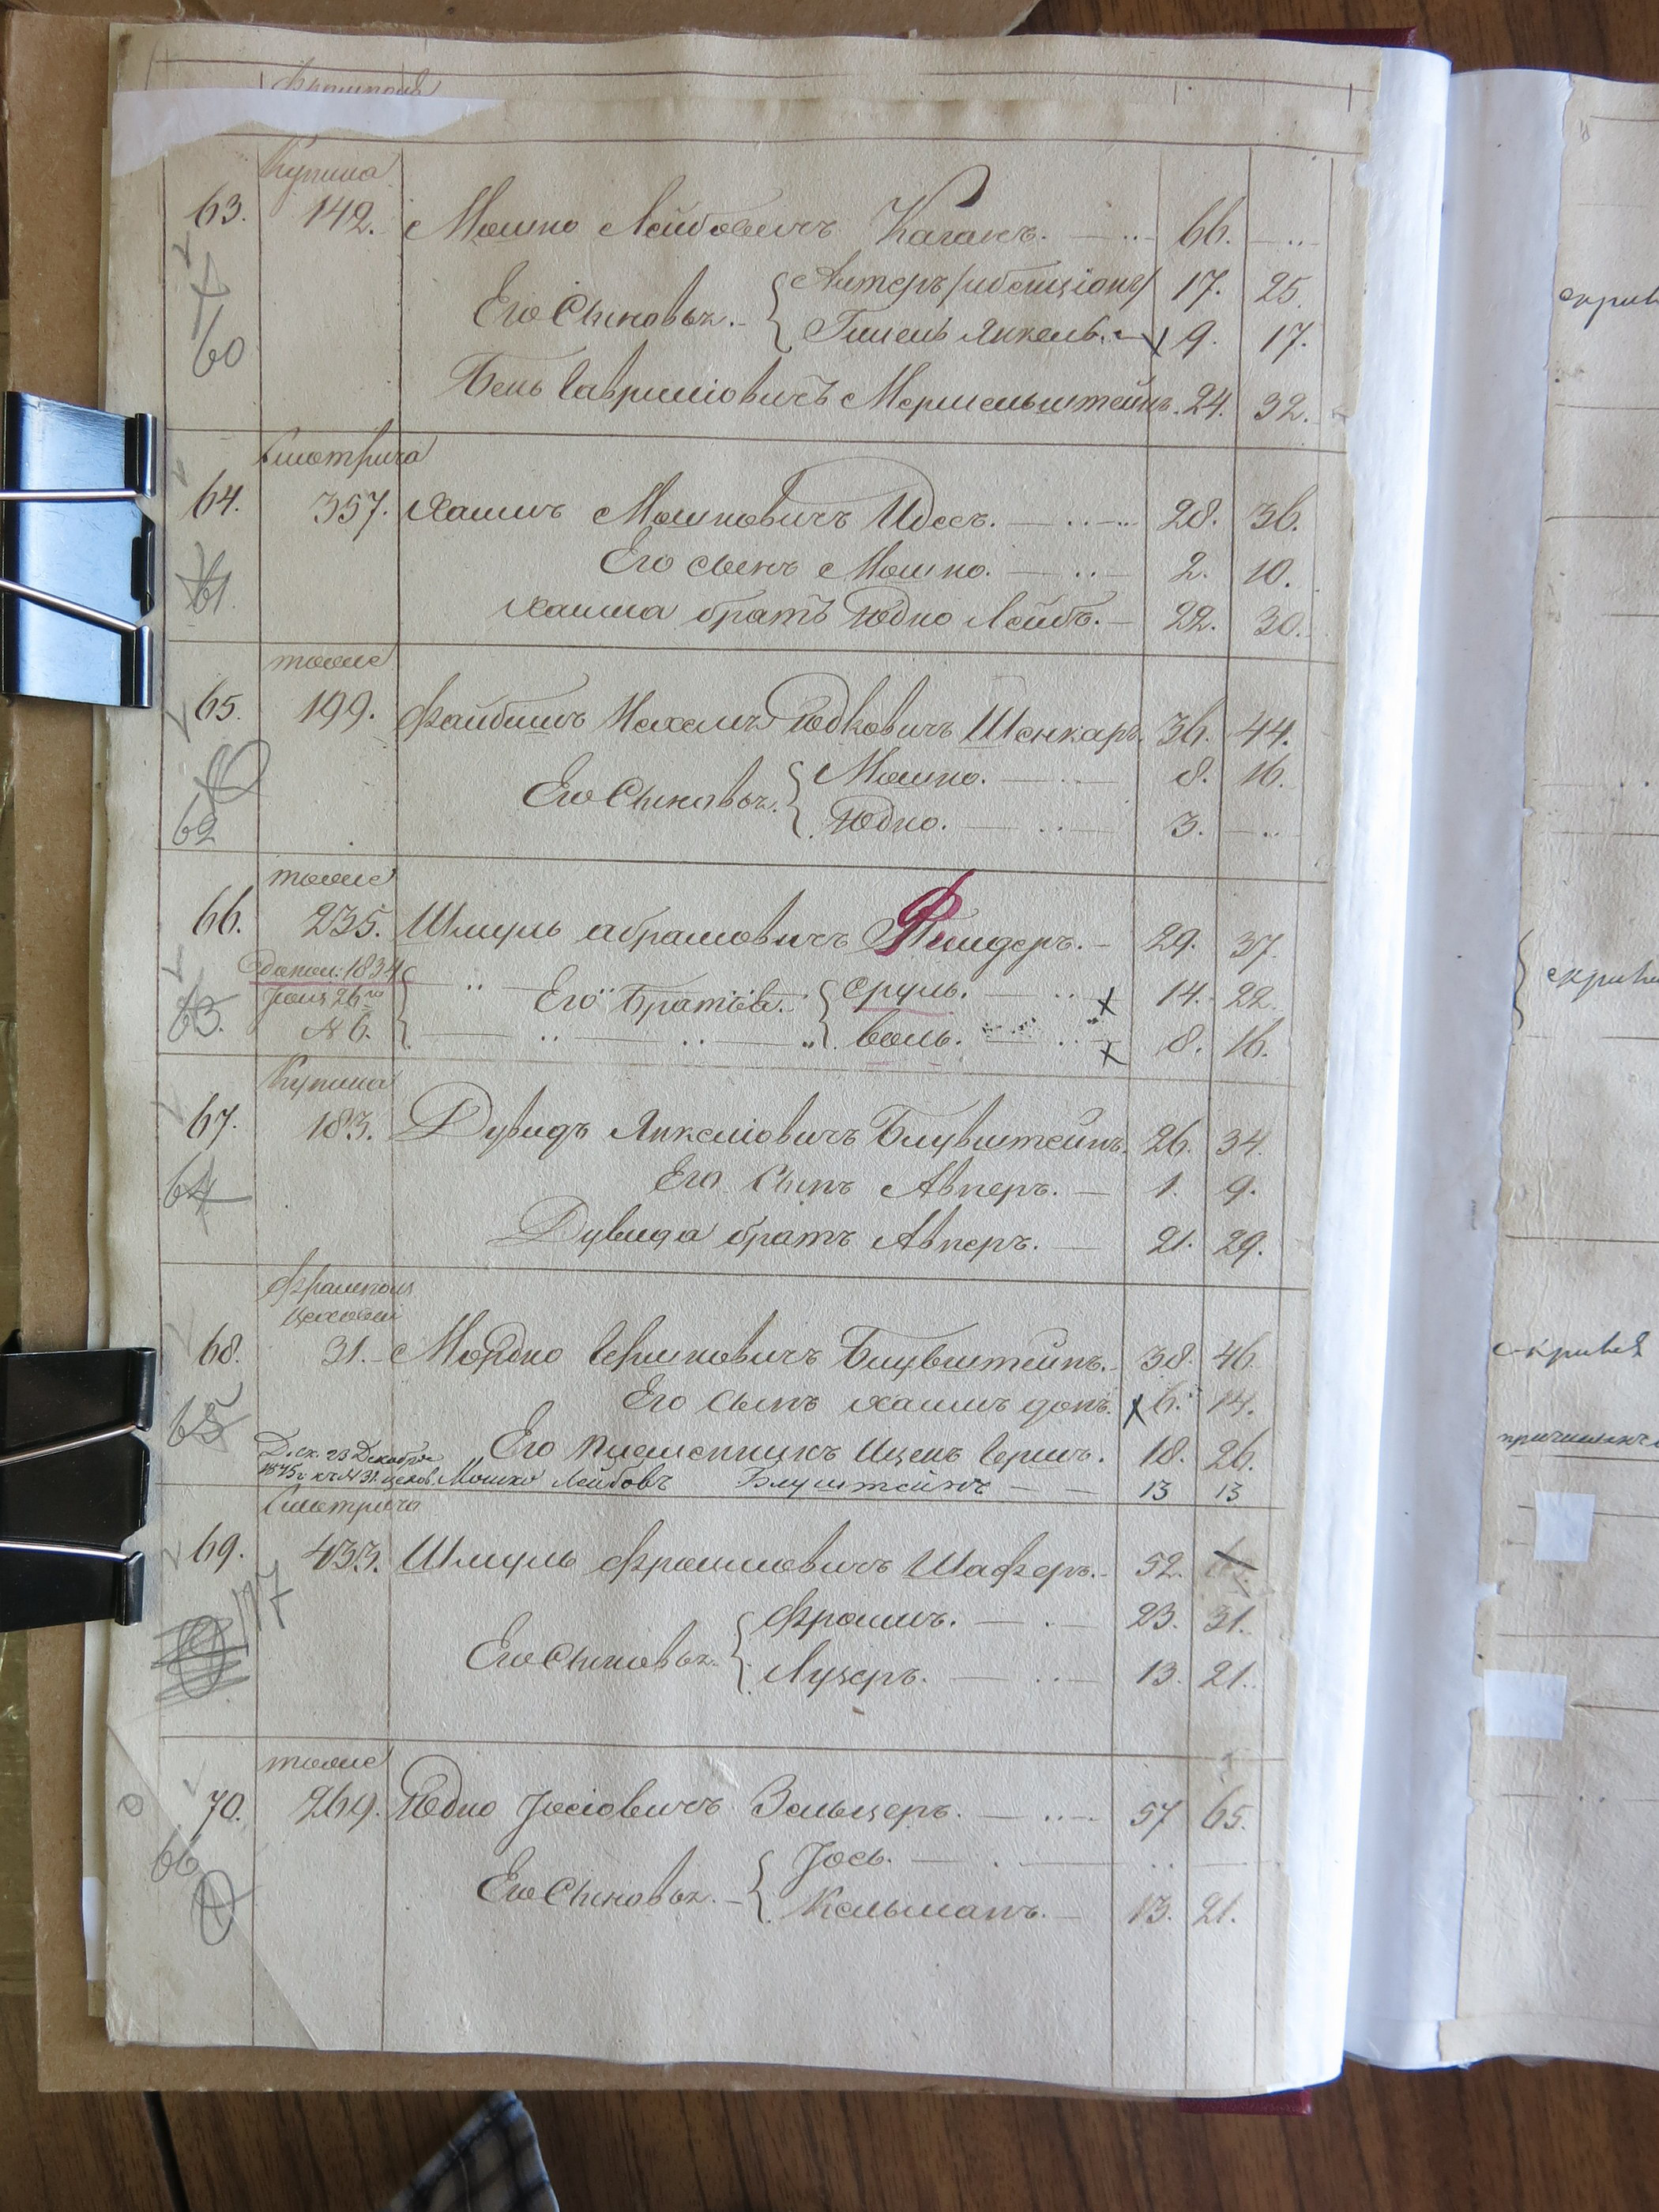 Купина
63. 142. Мошко Лейбовичъ Каганъ. 66.
Его Сыновья. 17. 25.
60 Янкель. 9. 17.
Бень Гавриліовичъ Мермельштейнъ. 24. 32.
Смотрича
64. 357. Хаимъ Мошковичъ Идесъ. 28. 36.
Его сынъ Мошко. 2. 10.
61. Хаима братъ Юдко Лейбъ. 22. 30.
тоже
65. 199. Файбишъ Нахемъ Юдковичъ Шенкаръ. 36. 44.
Его Сыновья. Мошко. 8. 16.
62 Юдко. 3.
тоже
66. 235. Шмуль Абрамовичъ 29. 37.
Допол: 1834
Его братья. Сруль. 14. 22.
63. 26го
№ 6. Воль. 8. 16.
Купина
67. 183. Дувидъ Янкеліовичъ Блувштейнъ. 26. 34.
64 Его Сынъ Авнеръ. 1. 9.
Дувида братъ Авнеръ. 21. 29.
Фрампола
Цеховой
68. 31. Мордко Гершковичъ Блувштейнъ. 38. 46.
Его Сынъ Хаимъ 6. 14.
65 Его племенникъ Ицекъ Гершъ. 18. 26.
23 Декабря
1845 г. къ № 31. цехов. Мошко Лейбовъ Блуштейнъ 13 13
Смотрича
69. 433. Шмуль Фроимовичъ Шаферъ. 52.
Его Сыновья. Фроимъ. 23. 31.
Лузеръ. 13. 21.
тоже
70. 269. Юдко Іосіовичъ Зельцеръ. 57 65.
66 Іось.
Его Сыновья. Кельманъ. 13. 21.